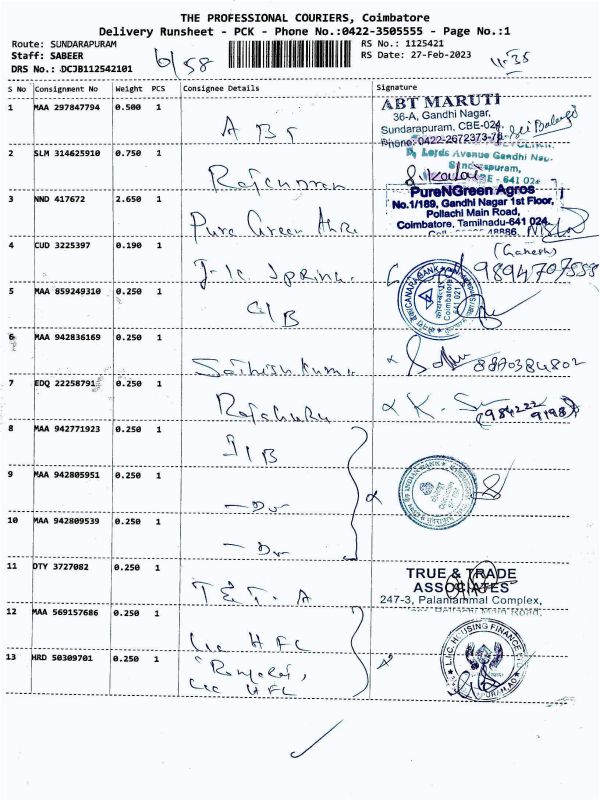 THE PROFESSIONAL COURIERS, Coimbatore
Delivery Runsheet - PCK - Phone No.:0422-3505555 - Page No.:1
Route: SUNDARAPURAM
Staff: SABEER
DRS No.: DCJB112542101
6/58
RS No.: 1125421
RS Date: 27-Feb-2023
11-35
S No Consignment No Weight PCS Consignee Details Signature
1 MAA 297847794 0.500 1
ABT MARUTI
36-A, Gandhi Nagar,
Sundarapuram, CBE-024.
Phone: 0422-2672373-76
2 SLM 314625910 0.750 1
Lords Avenue Gandhi
Sundarapuram,
641 024
3 NND 417672 2.650 1
Pure Green
PureNGreen Agros
No.1/189, Gandhi Nagar 1st Floor,
Pollachi Main Road,
Coimbatore, Tamilnadu-641 024
48886
4 CUD 3225397 0.190 1
(Ganesh)
9894707555
5 MAA 859249310 0.250 1
C/B
CANARA BANK
Coimbatore
641 021
6 MAA 942836169 0.250 1
Sathish Kumar
8870384802
7 EDQ 22258791 0.250 1
K.
8 MAA 942771923 0.250 1
I/B
9 MAA 942805951 0.250 1
-Do-
INDIAN BANK
10 MAA 942809539 0.250 1
-Do-
11 DTY 3727082 0.250 1
T & T. A
TRUE & TRADE
ASSOCIATES
247-3, Palaniammal Complex,
12 MAA 569157686 0.250 1
Lic HFL
L.I.C. HOUSING FINANCE
13 HRD 50309701 0.250 1
Lic HFL